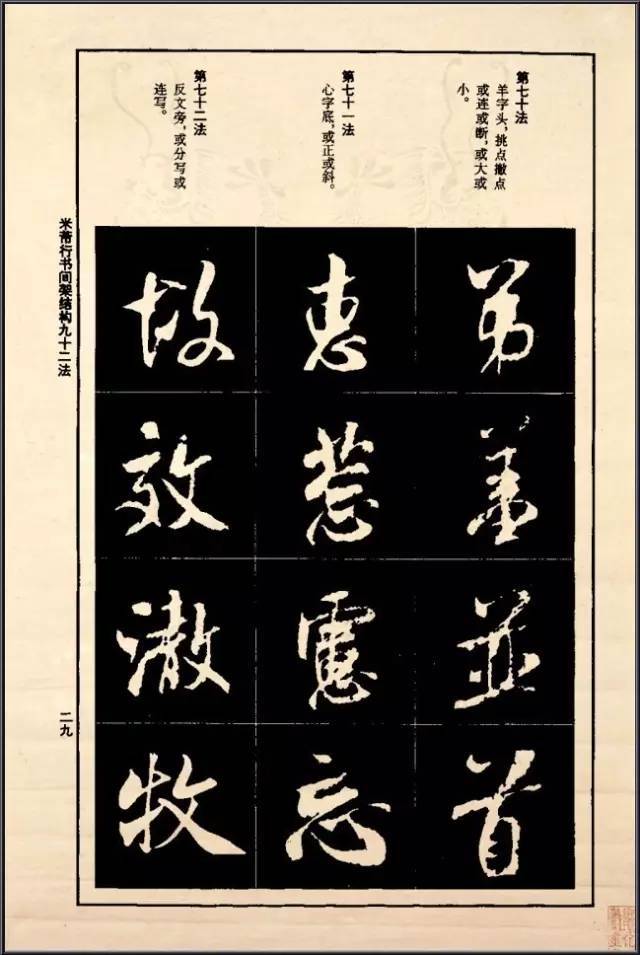 第七十法
羊字头,挑点撇点
或连或断,或大或
小。
第七十一法
心字底,或正或斜。
第七十二法
反文旁,或分写或
连写。
弟
差
並
首
惠
惹
慮
忘
故
效
澈
牧
米芾行书间架结构九十二法
二九